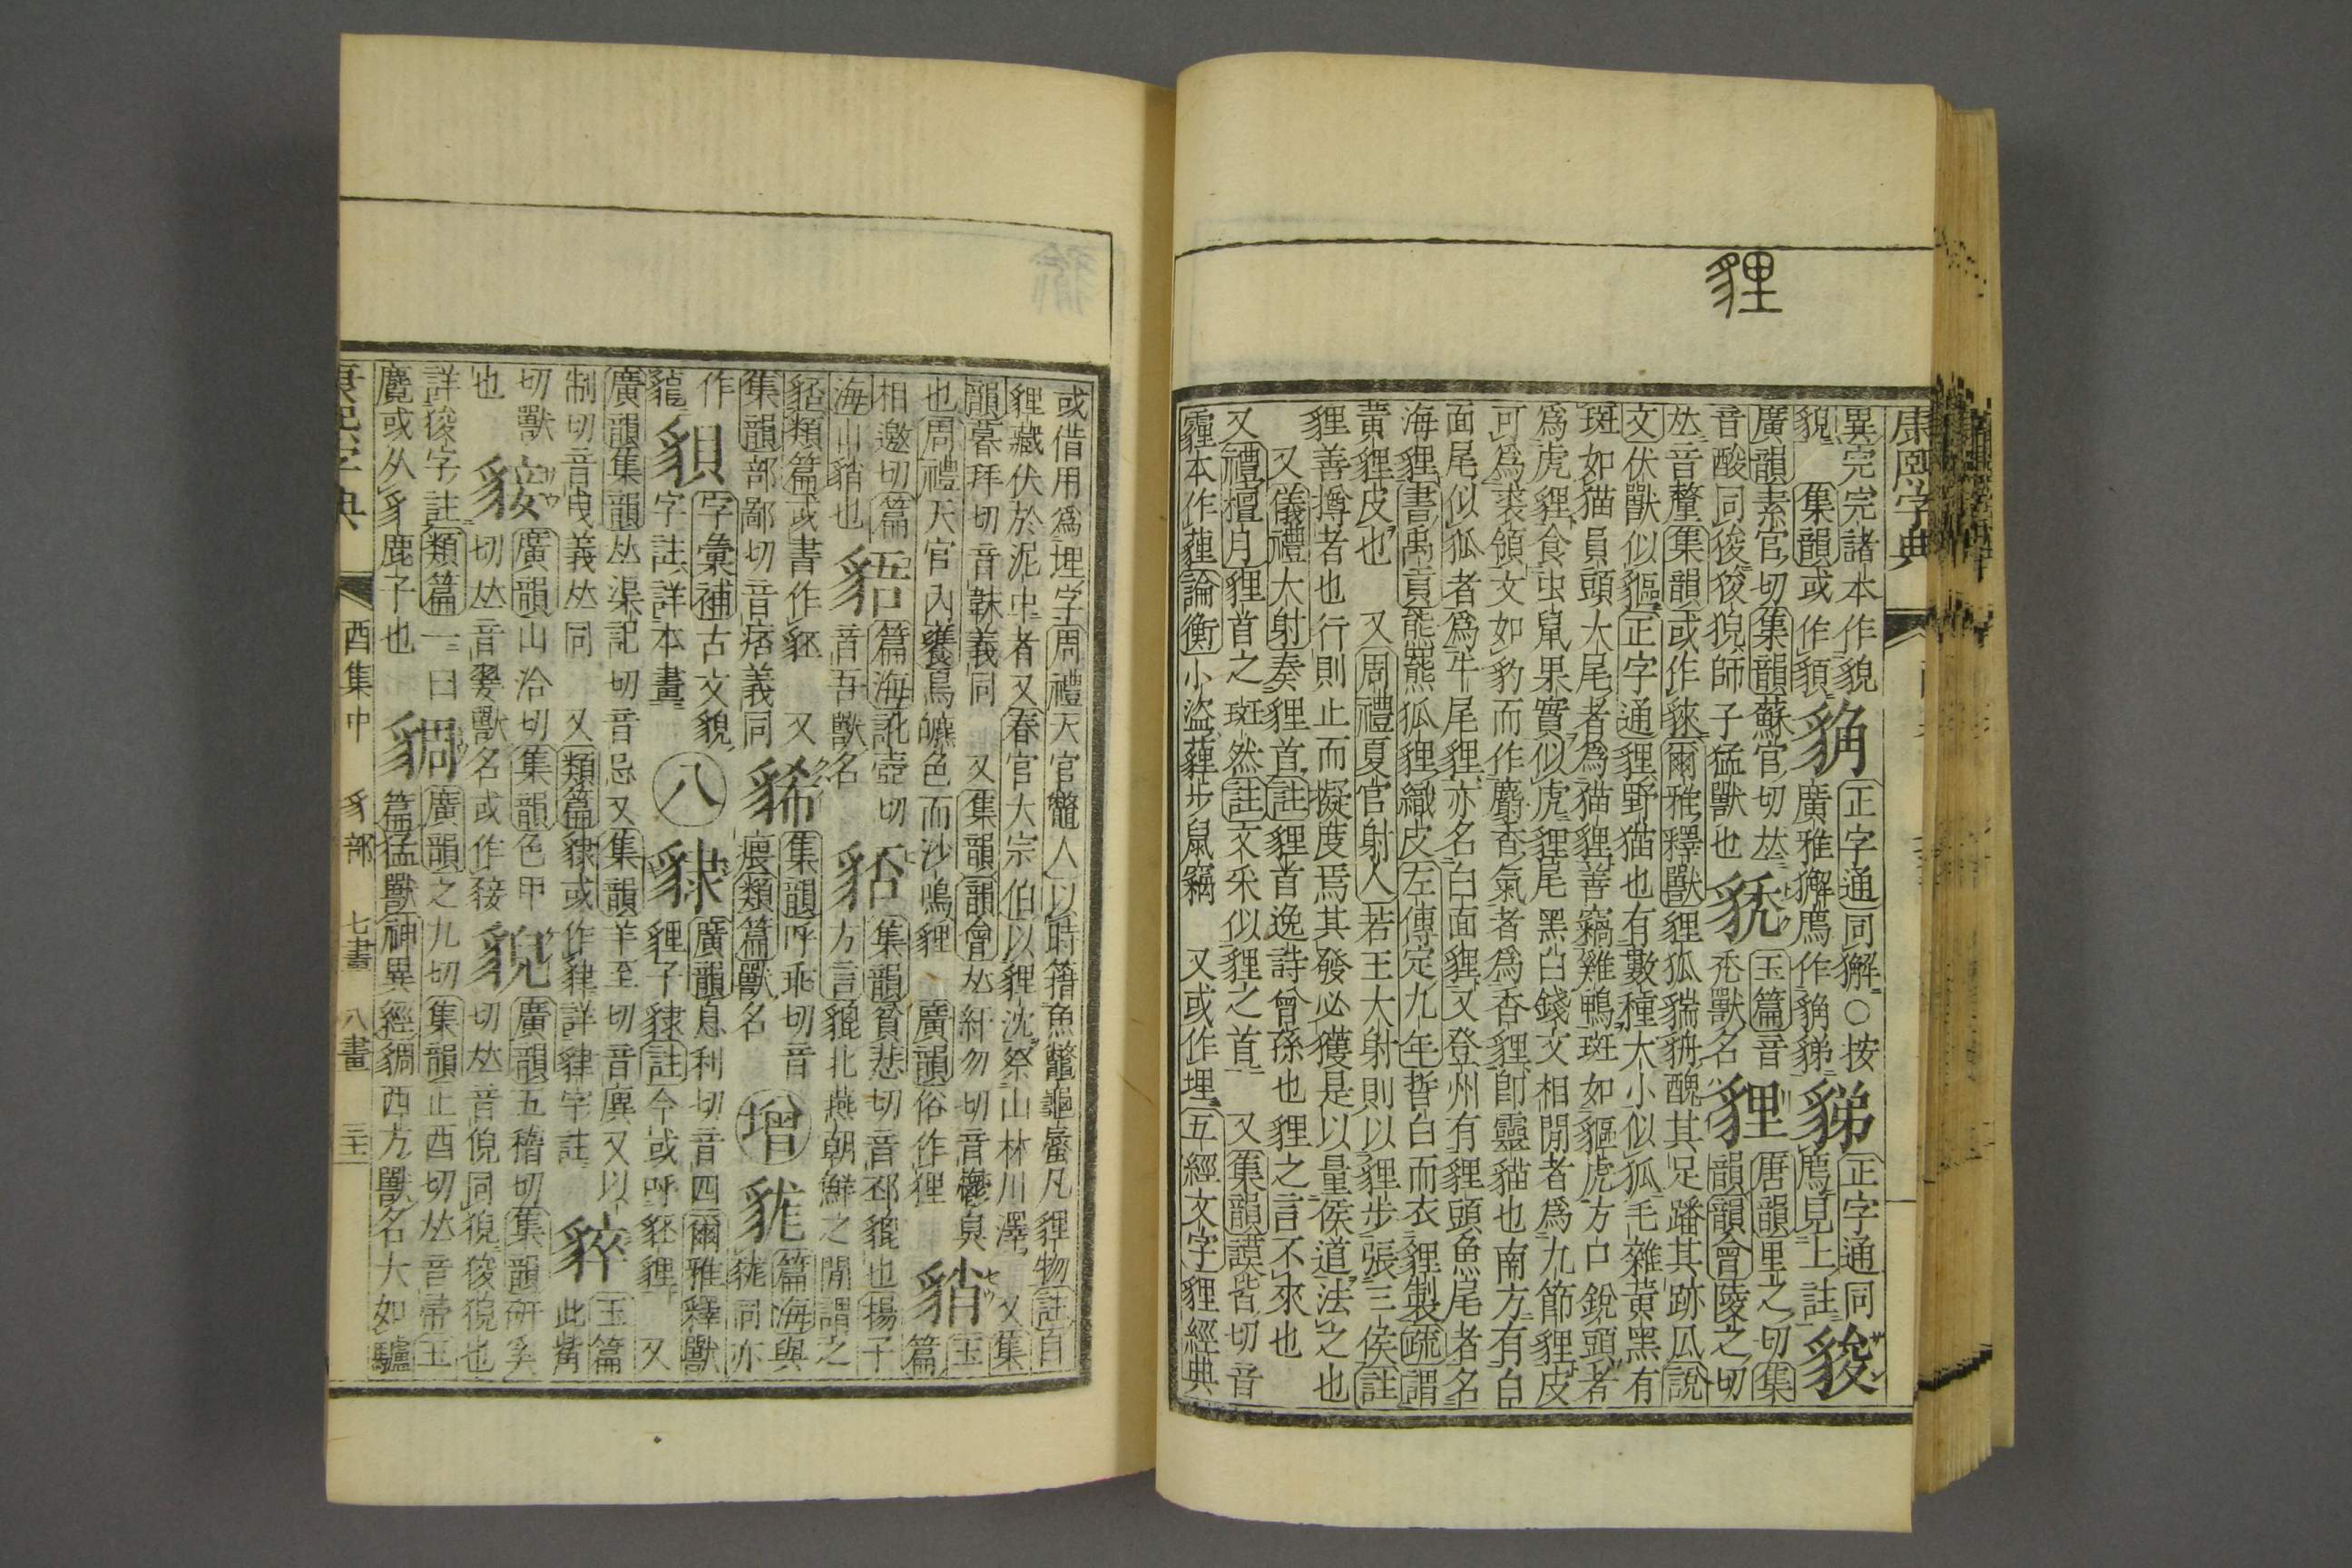 貍
康熙字典
異完完諸本作貌 正字通同獬○按 正字通同
貌 集韻或作䫉 廣雅獬廌作 廌見上註
廣韻素官切集韻蘇官切𠀤 玉篇音 唐韻里之切集
音酸同狻狻猊師子猛獸也 禿獸名 貍 韻韻會陵之切
𠀤音釐集韻或作𧳟爾雅釋獸貍狐貒貈醜其足蹯其跡瓜說
文伏獸似貙正字通貍野猫也有數種大小似狐毛雜黃黑有
斑如猫員頭大尾者爲猫貍善竊雞鴨斑如貙虎方口銳頭者
爲虎貍食虫鼠果實似虎貍尾黑白錢文相閒者爲九節貍皮
可爲裘領文如豹而作麝香氣者爲香貍卽靈貓也南方有白
面尾似狐者爲牛尾貍亦名白面貍又登州有貍頭魚尾者名
海貍書禹貢熊羆狐貍織皮左傳定九年晳白而衣貍製疏謂
黃貍皮也 又周禮夏官射人若王大射則以貍步張三侯註
貍善搏者也行則止而擬度焉其發必獲是以量侯道法之也
又儀禮大射奏貍首註貍首逸詩曾孫也貍之言不來也
又禮檀弓貍首之斑然註文采似貍之首 又集韻謨皆切音
霾本作薶論衡小盜薶步鼠竊 又或作埋五經文字貍經典
或借用爲埋字周禮天官鼈人以時簎魚鼈龜蜃凡貍物註自
貍藏伏於泥中者又春官大宗伯以貍沈祭山林川澤 又集
韻暮拜切音韎義同 又集韻韻會𠀤紆勿切音鬱臭 玉
也周禮天官內饔鳥皫色而沙鳴貍 廣韻俗作狸 篇
相邀切篇 篇海訛壺切 集韻貧悲切音邳貔也揚子
海山䝤也 音吾獸名 方言貔北燕朝鮮之閒謂之
䝙類篇或書作豾 又 集韻呼乖切音 篇海與
集韻部鄙切音痞義同 豨 㾯類篇獸名 增 㹸同亦
作 字彙補古文貌 廣韻息利切音四爾雅釋獸
貔 字註詳本畫 八 貍子隸註今或呼豾貍 又
廣韻集韻𠀤渠記切音忌又集韻羊至切音異又以 玉篇
制切音曳義𠀤同 又類篇或作肄詳肄字註 此觜
切獸 廣韻山洽切集韻色甲 廣韻五稽切集韻研奚
也 切𠀤音翣獸名或作 貎 切𠀤音倪同猊狻猊也
詳狻字註類篇一曰 廣韻之九切集韻止酉切𠀤音帚玉
麑或从豸鹿子也 篇猛獸神異經西方獸名大如驢
康熙字典 酉集中 豸部 七畫 八畫